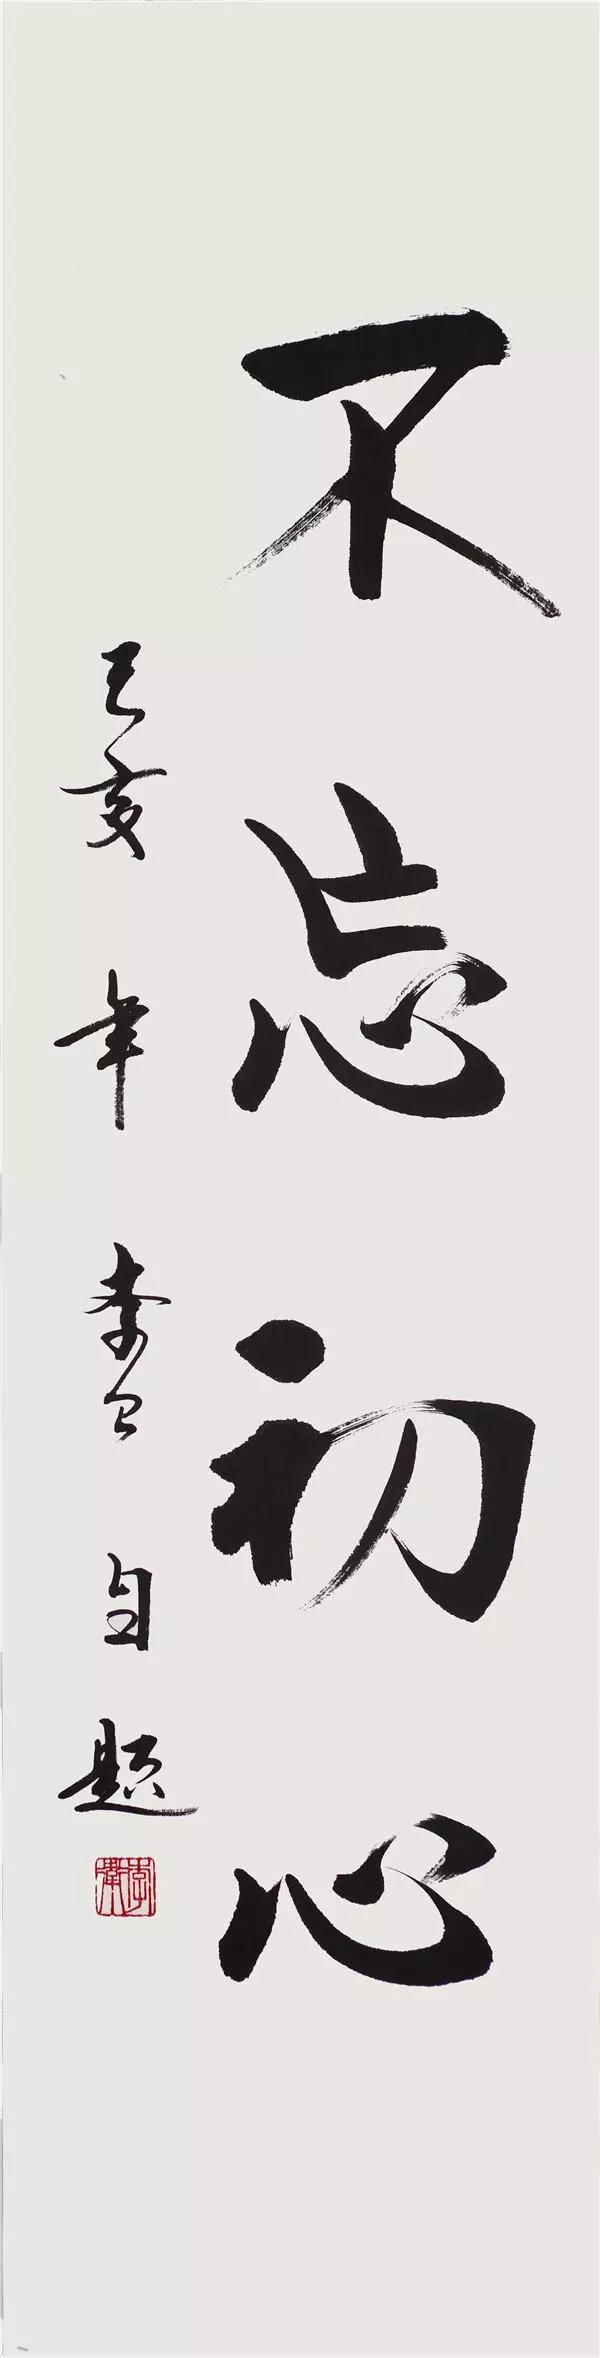 不忘初心
己亥年 李 自题
李